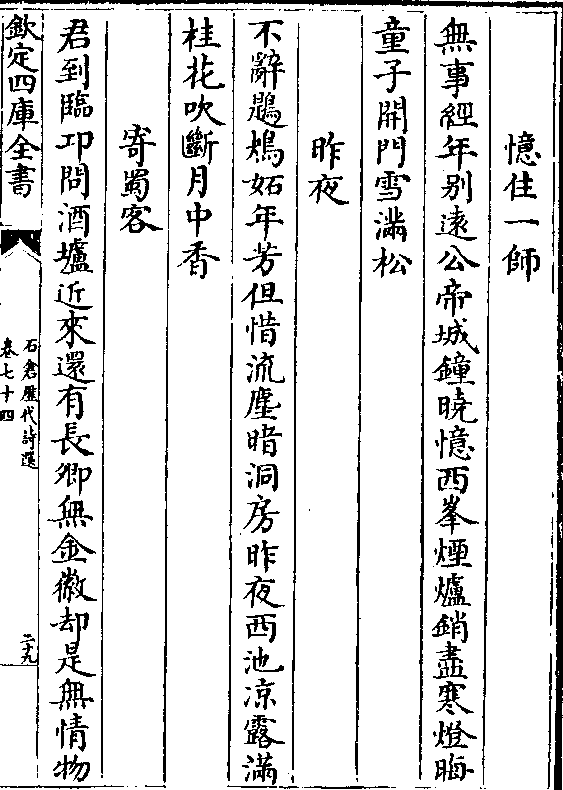 憶住一師
無事經年别遠公帝城鐘曉憶西峯煙爐銷盡寒燈晦
童子開門雪滿松
昨夜
不辭鶗鴂妬年芳但惜流塵暗洞房昨夜西池凉露滿
桂花吹斷月中香
寄蜀客
君到臨邛問酒壚近來還有長卿無金徽却是無情物
欽定四庫全書
石倉歷代詩選
卷七十四
二十九